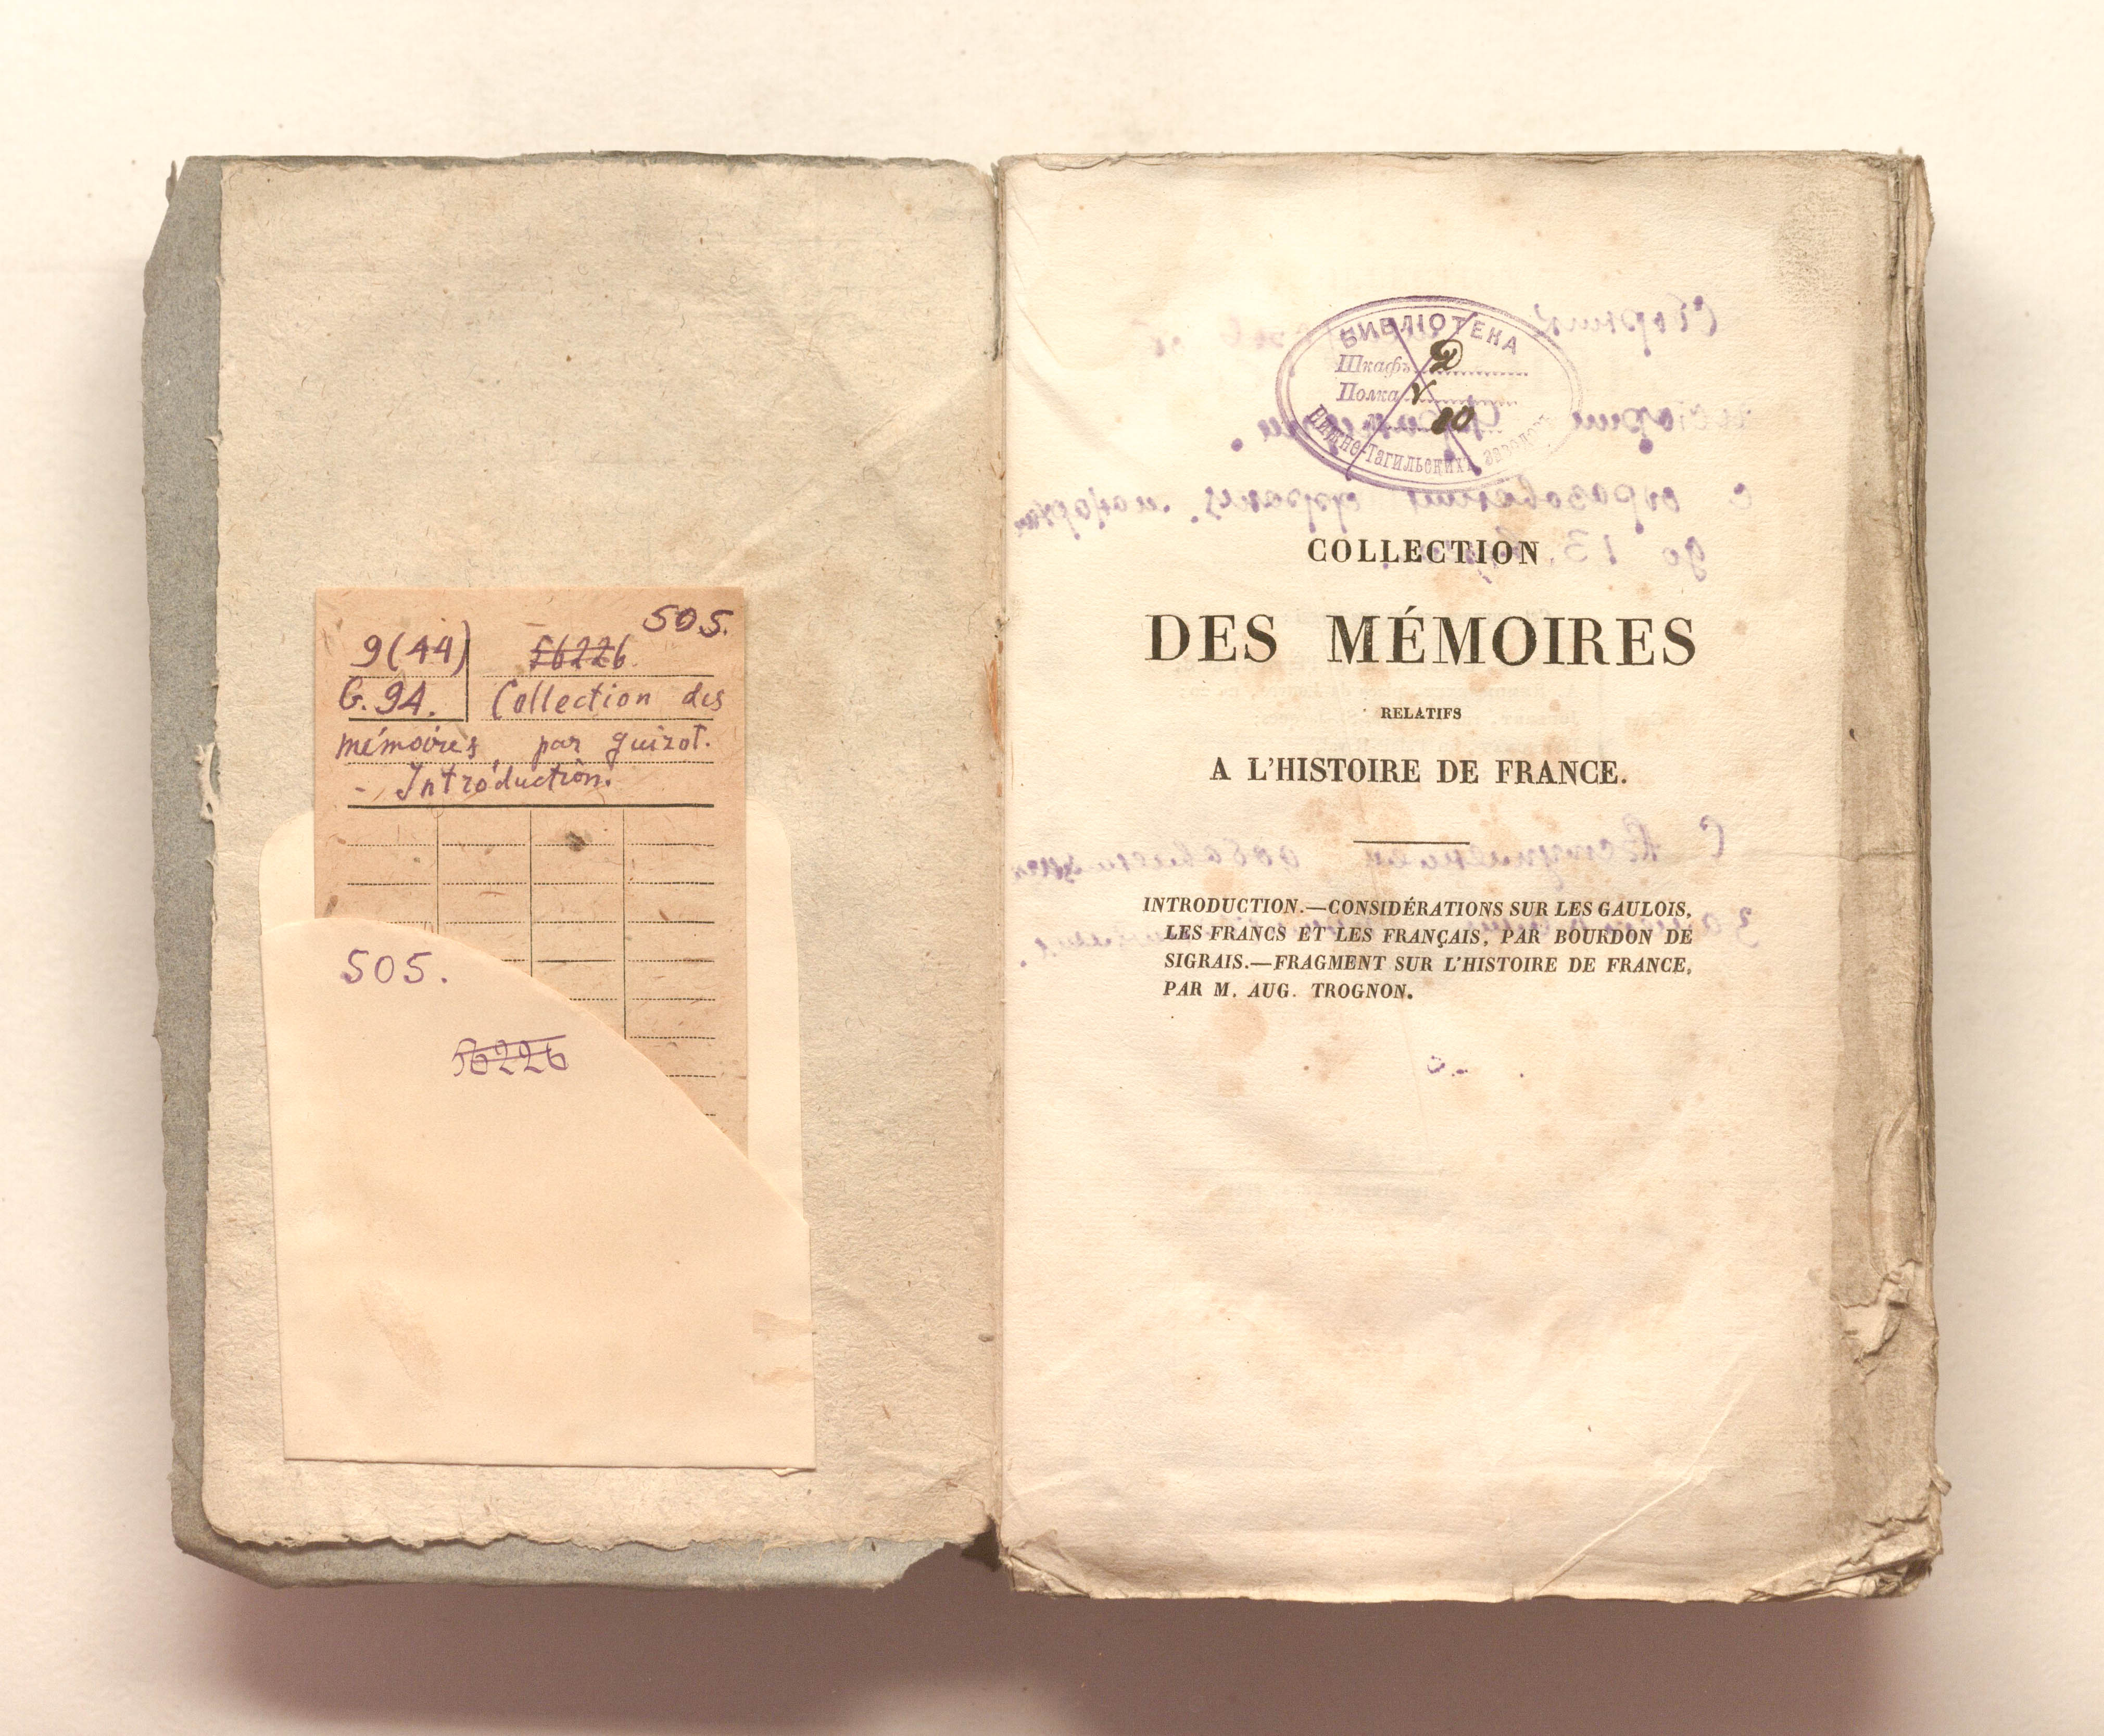 505.
9(44)
56226.
G.94.
Collection des
mémoires, par guizot.
- Introduction.
505.
56226
БИБЛІОТЕКА
Шкафъ
Полка
10
Нижне-Тагильскихъ заводовъ
COLLECTION
DES MÉMOIRES
RELATIFS
A L'HISTOIRE DE FRANCE.
INTRODUCTION.—CONSIDÉRATIONS SUR LES GAULOIS,
LES FRANCS ET LES FRANÇAIS, PAR BOURDON DE
SIGRAIS.—FRAGMENT SUR L'HISTOIRE DE FRANCE,
PAR M. AUG. TROGNON.